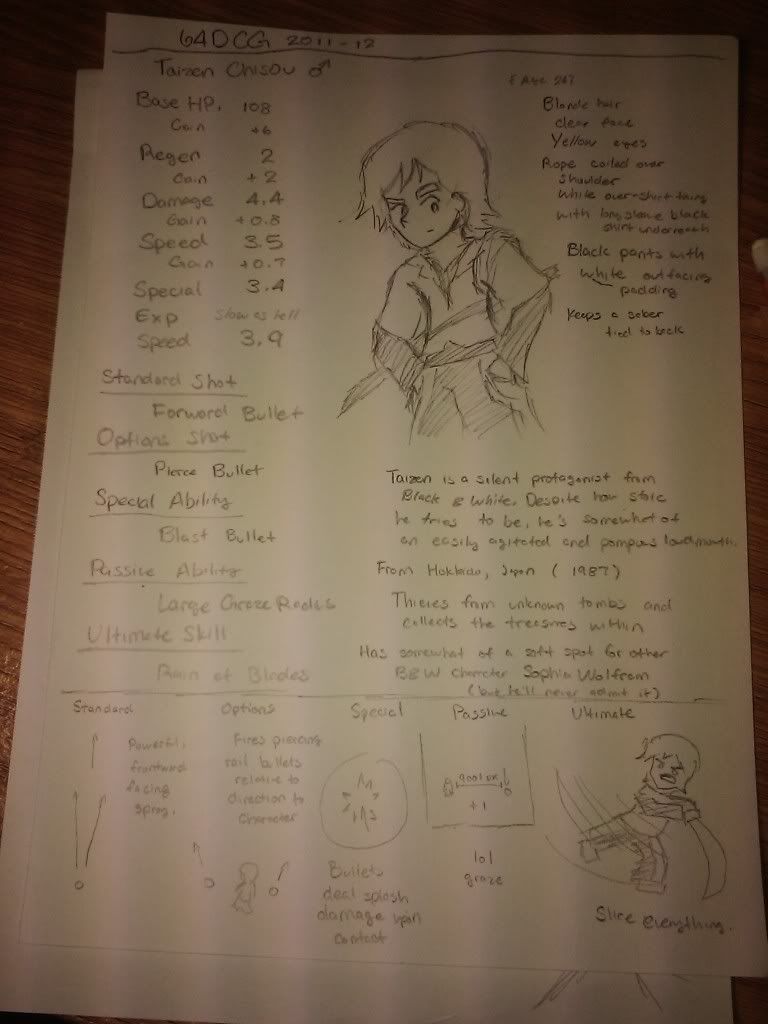 64DCG 2011-12
Taizen Chisou ♂
Base HP. 108
Gain +6
Regen 2
Gain +2
Damage 4.4
Gain +0.8
Speed 3.5
Gain +0.7
Special 3.4
Exp Slow as hell
Speed 3.9
Standard Shot
Forward Bullet
Options Shot
Pierce Bullet
Special Ability
Blast Bullet
Passive Ability
Large Graze Radus
Ultimate Skill
Rain of Blades
Blonde hair
clear face
Yellow eyes
Rope coiled over
shoulder
White over-shirt thing
with long sleeve black
shirt underneath
Black pants with
white outfacing
padding
Keeps a saber
tied to back
Taizen is a silent protagonist from
Black & White. Despite how stoic
he tries to be, he's somewhat of
an easily agitated and pompus loudmouth.
From Hokkaido, Japan (1987)
Thieves from unknown tombs and
collects the treasures within
Has somewhat of a soft spot for other
B&W character Sophia Wolfram
(but he'll never admit it)
Standard
Powerful,
frontward
facing
spray.
Options
Fires piercing
rail bullets
relative to
direction to
character
Special
Bullets
deal splash
damage upon
contact
Passive
+1
lol
graze
Ultimate
Slice everything.